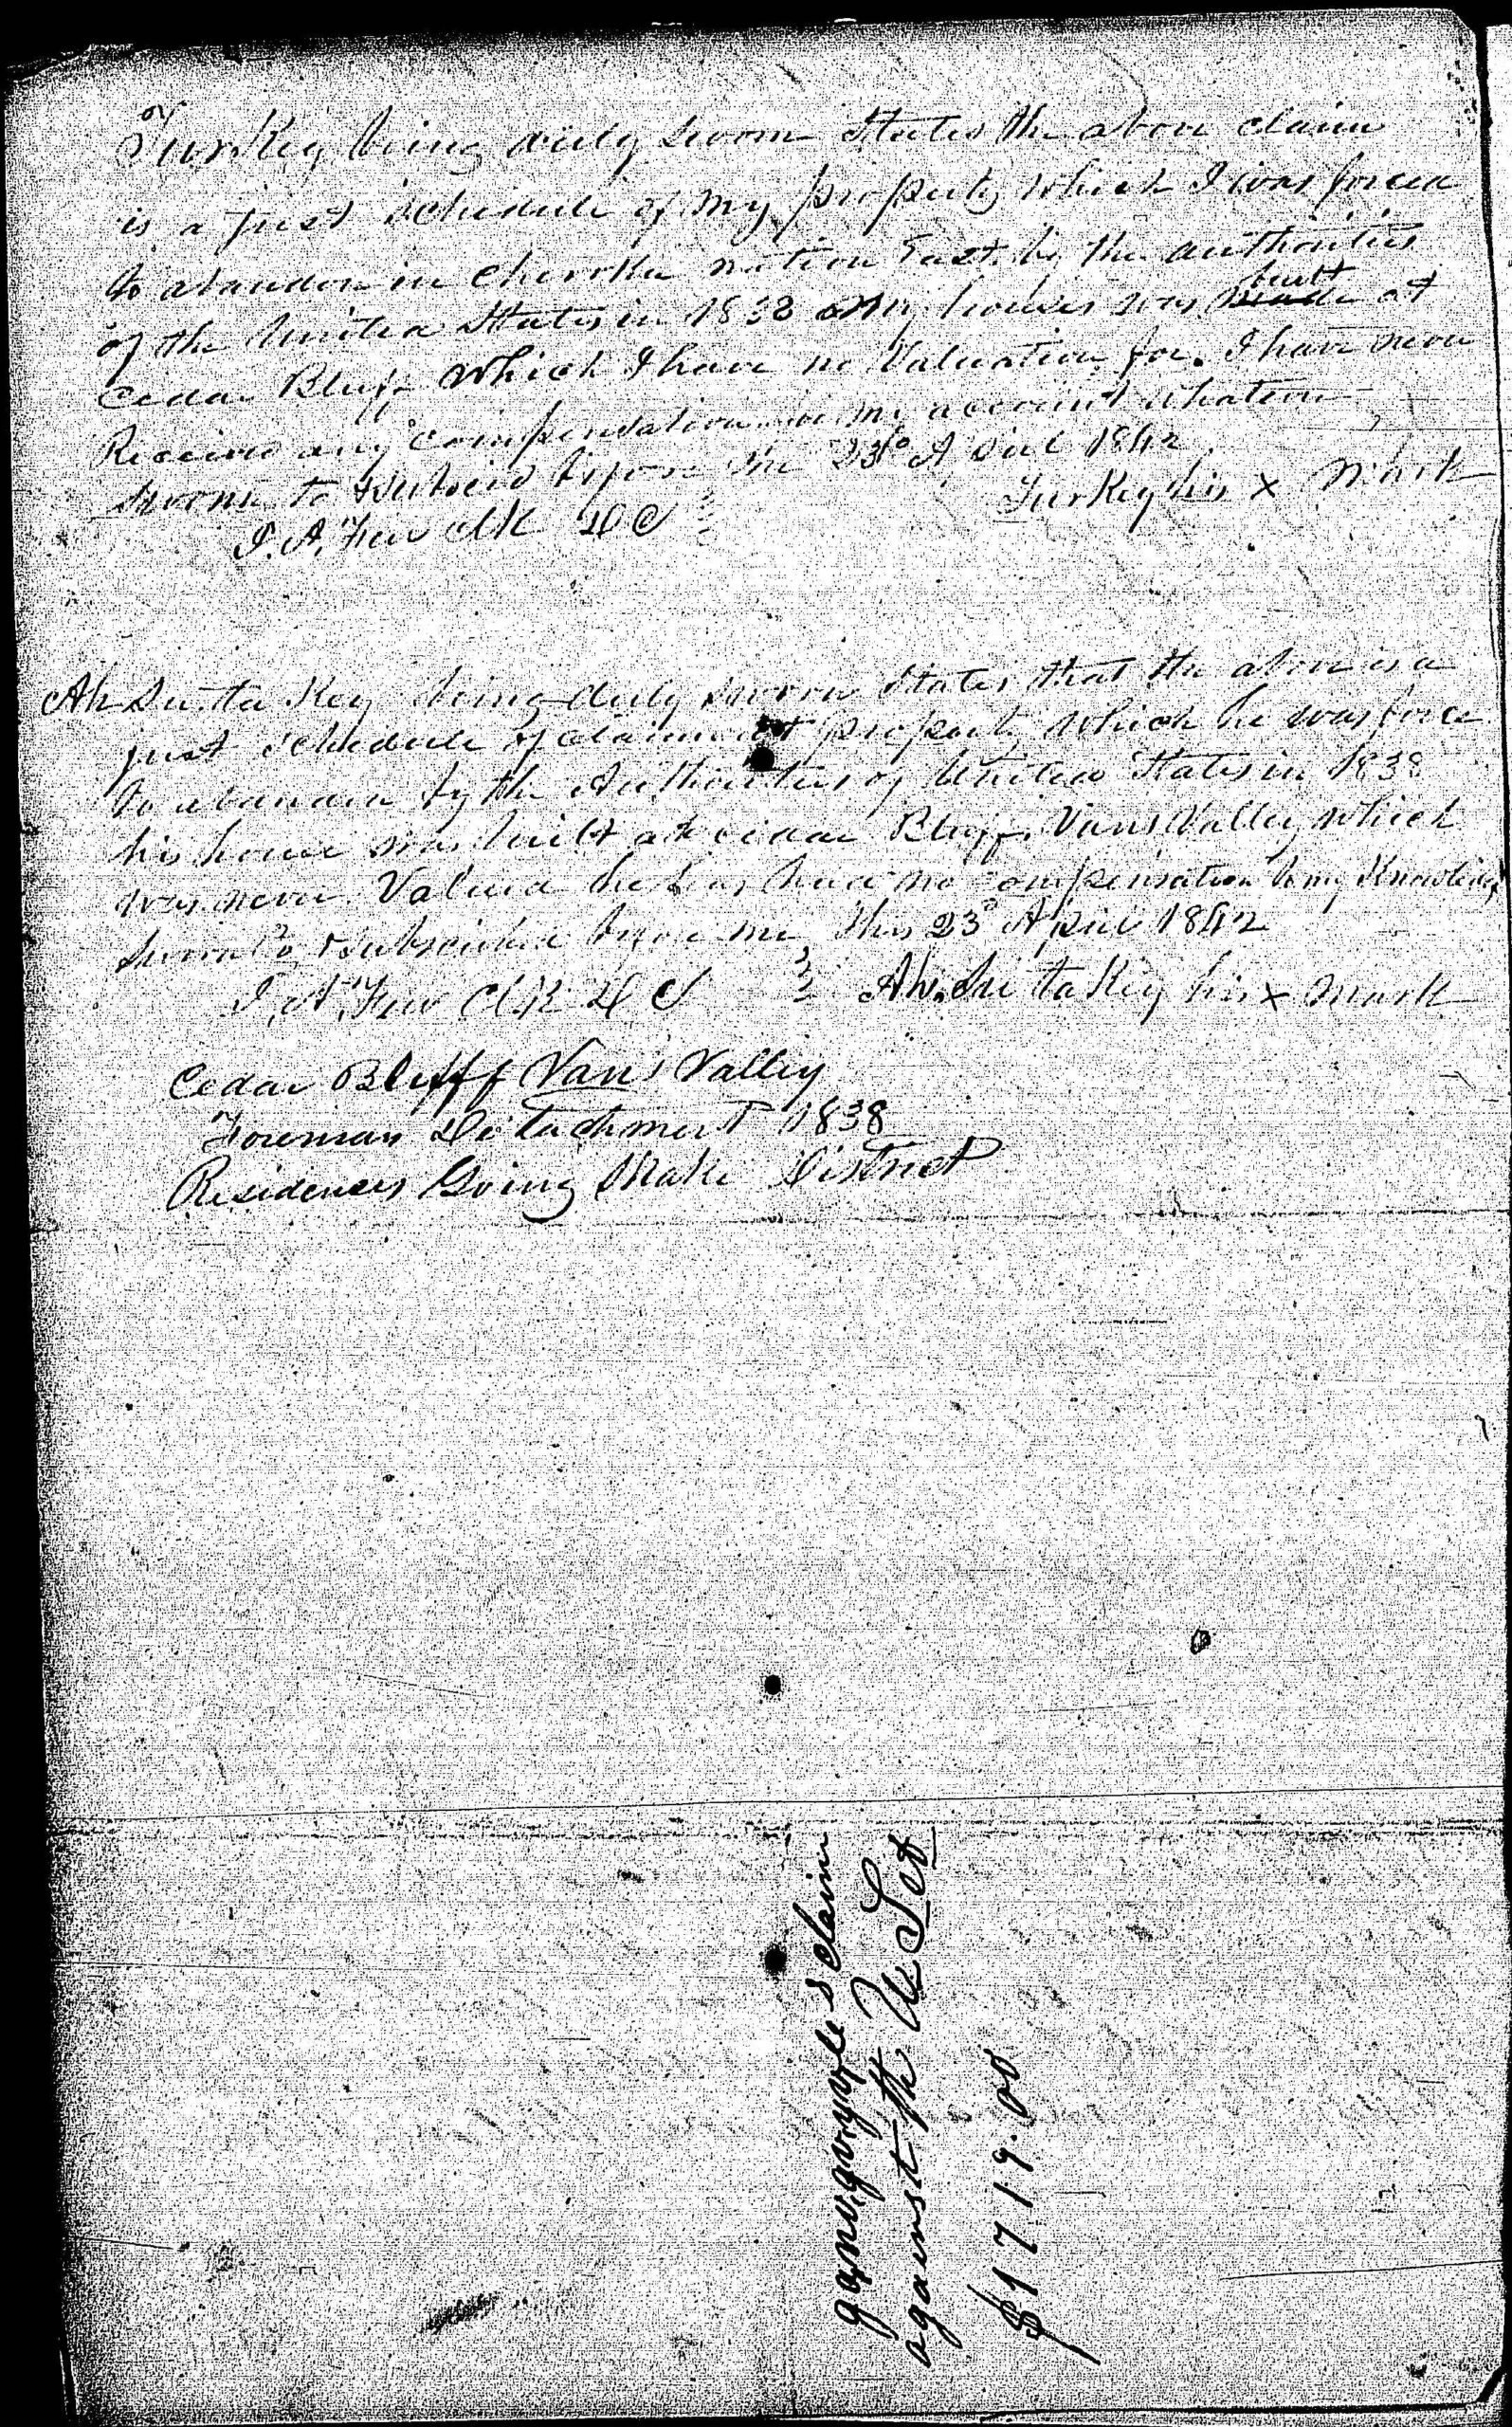 Turkey being duly sworn States the above claim
is a just schedule of my property which I was forced
to abandon in Cherokee nation East by the authorities
of the United States in 1838 my houses was made built at
Cedar Bluff which I have no Valuation for. I have never
Received any compensation on my account whatever
Sworn to & Subscribd before me 23d April 1842
Turkey his x mark
J. A. Few Clk D C
Ah Su. ta Key being duly sworn States that the above is a
just schedule of claimant property which he was force
to abandon by the Authorities of United States in 1838
his house was built at Cedar Bluff Vans Valley which
was never Valued he has had no compensation to my Knowledge
Sworn to & Subscribed before me this 23d April 1842
J. A. Few Clk D C Ah. Su ta Key his x mark
Cedar Bluff Vans Valley
Foreman Detachment 1838
Residences Going Snake District
claim
against the U S
$1719.00